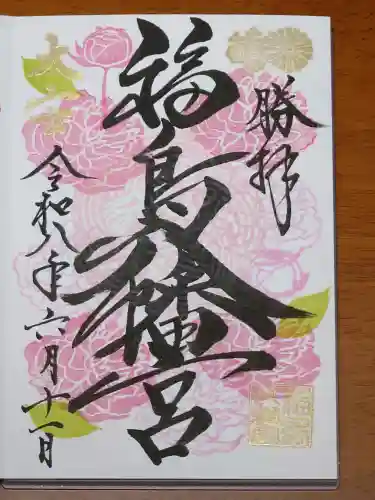 勝拝
福島八幡宮
令和八年六月十一日